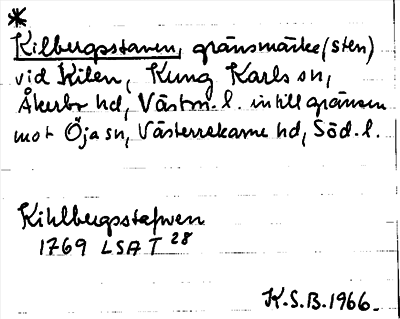 *
Kilbergsstaven, gränsmärke (sten)
vid Kilen, Kung Karls sn,
Åkerbo hd, Västm. l. intill gränsen
mot Öja sn, Västerrekarne hd, Söd. l.
Kihlbergsstafwen
1769 LSA T 28
K.S.B. 1966.